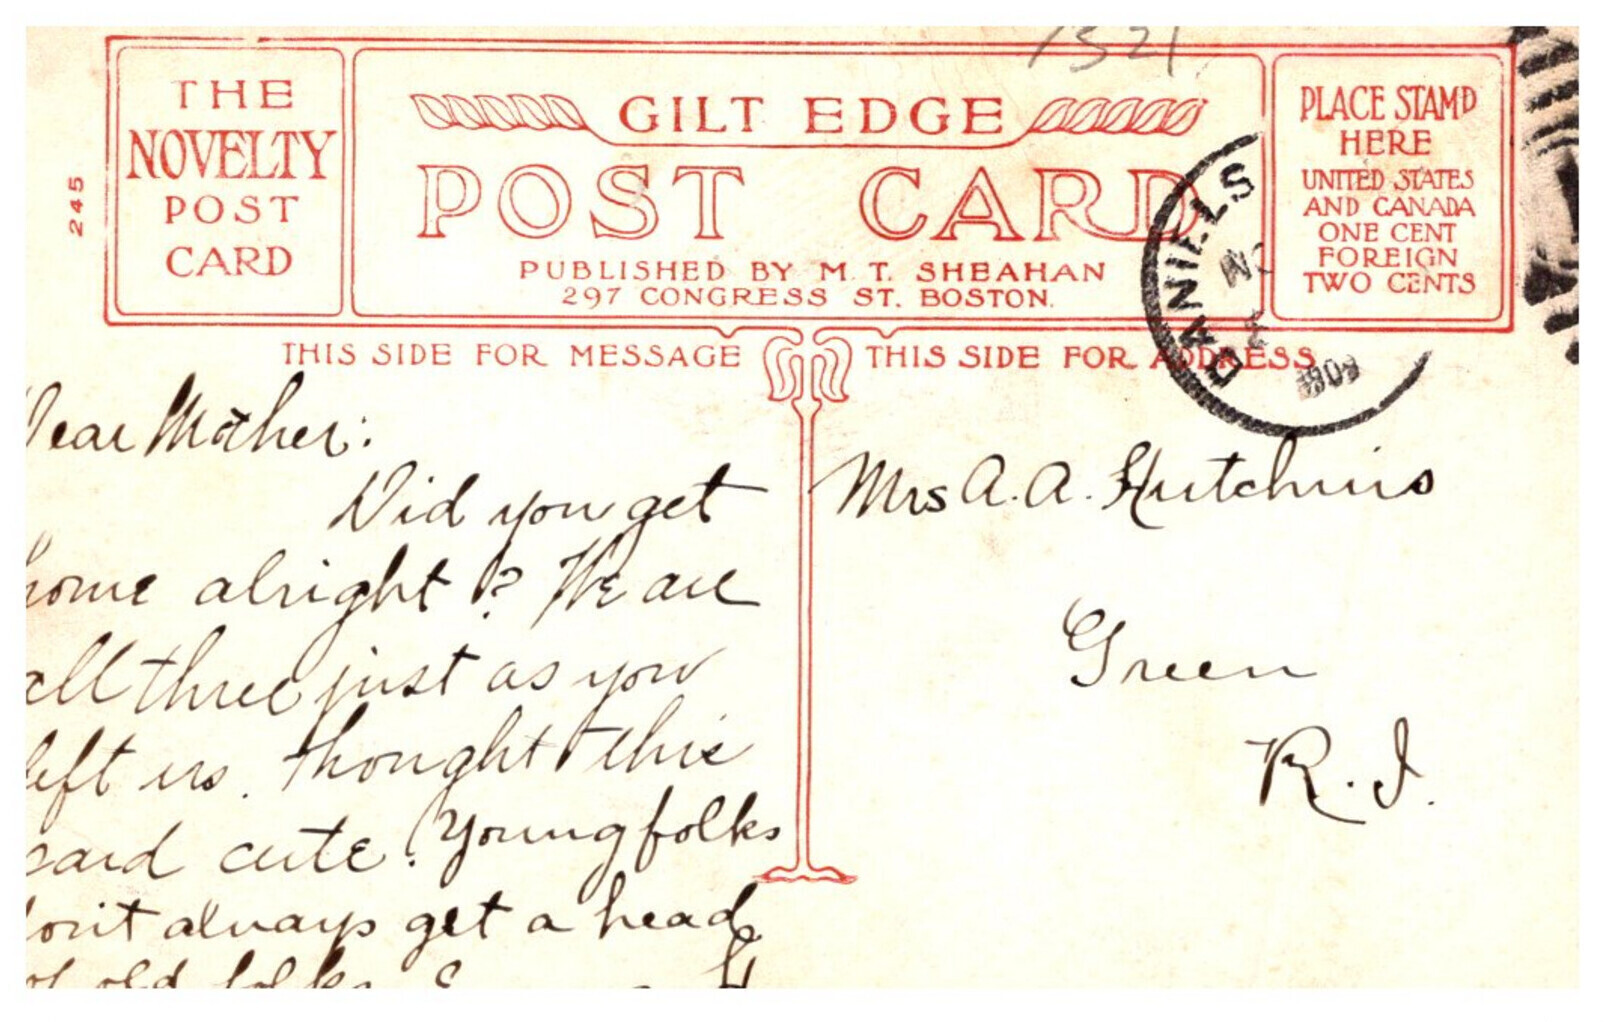 1521
THE
NOVELTY
POST
CARD
245
GILT EDGE
POST CARD
PUBLISHED BY M. T. SHEAHAN
297 CONGRESS ST. BOSTON.
PLACE STAMP
HERE
UNITED STATES
AND CANADA
ONE CENT
FOREIGN
TWO CENTS
DANIELS
1909
THIS SIDE FOR MESSAGE
THIS SIDE FOR ADDRESS
Dear Mother:
Did you get
home alright? We are
all three just as you
left us. Thought this
card cute. Young folks
don't always get a head
of old folks.
Mrs A. A. Hutchins
Green
R. I.